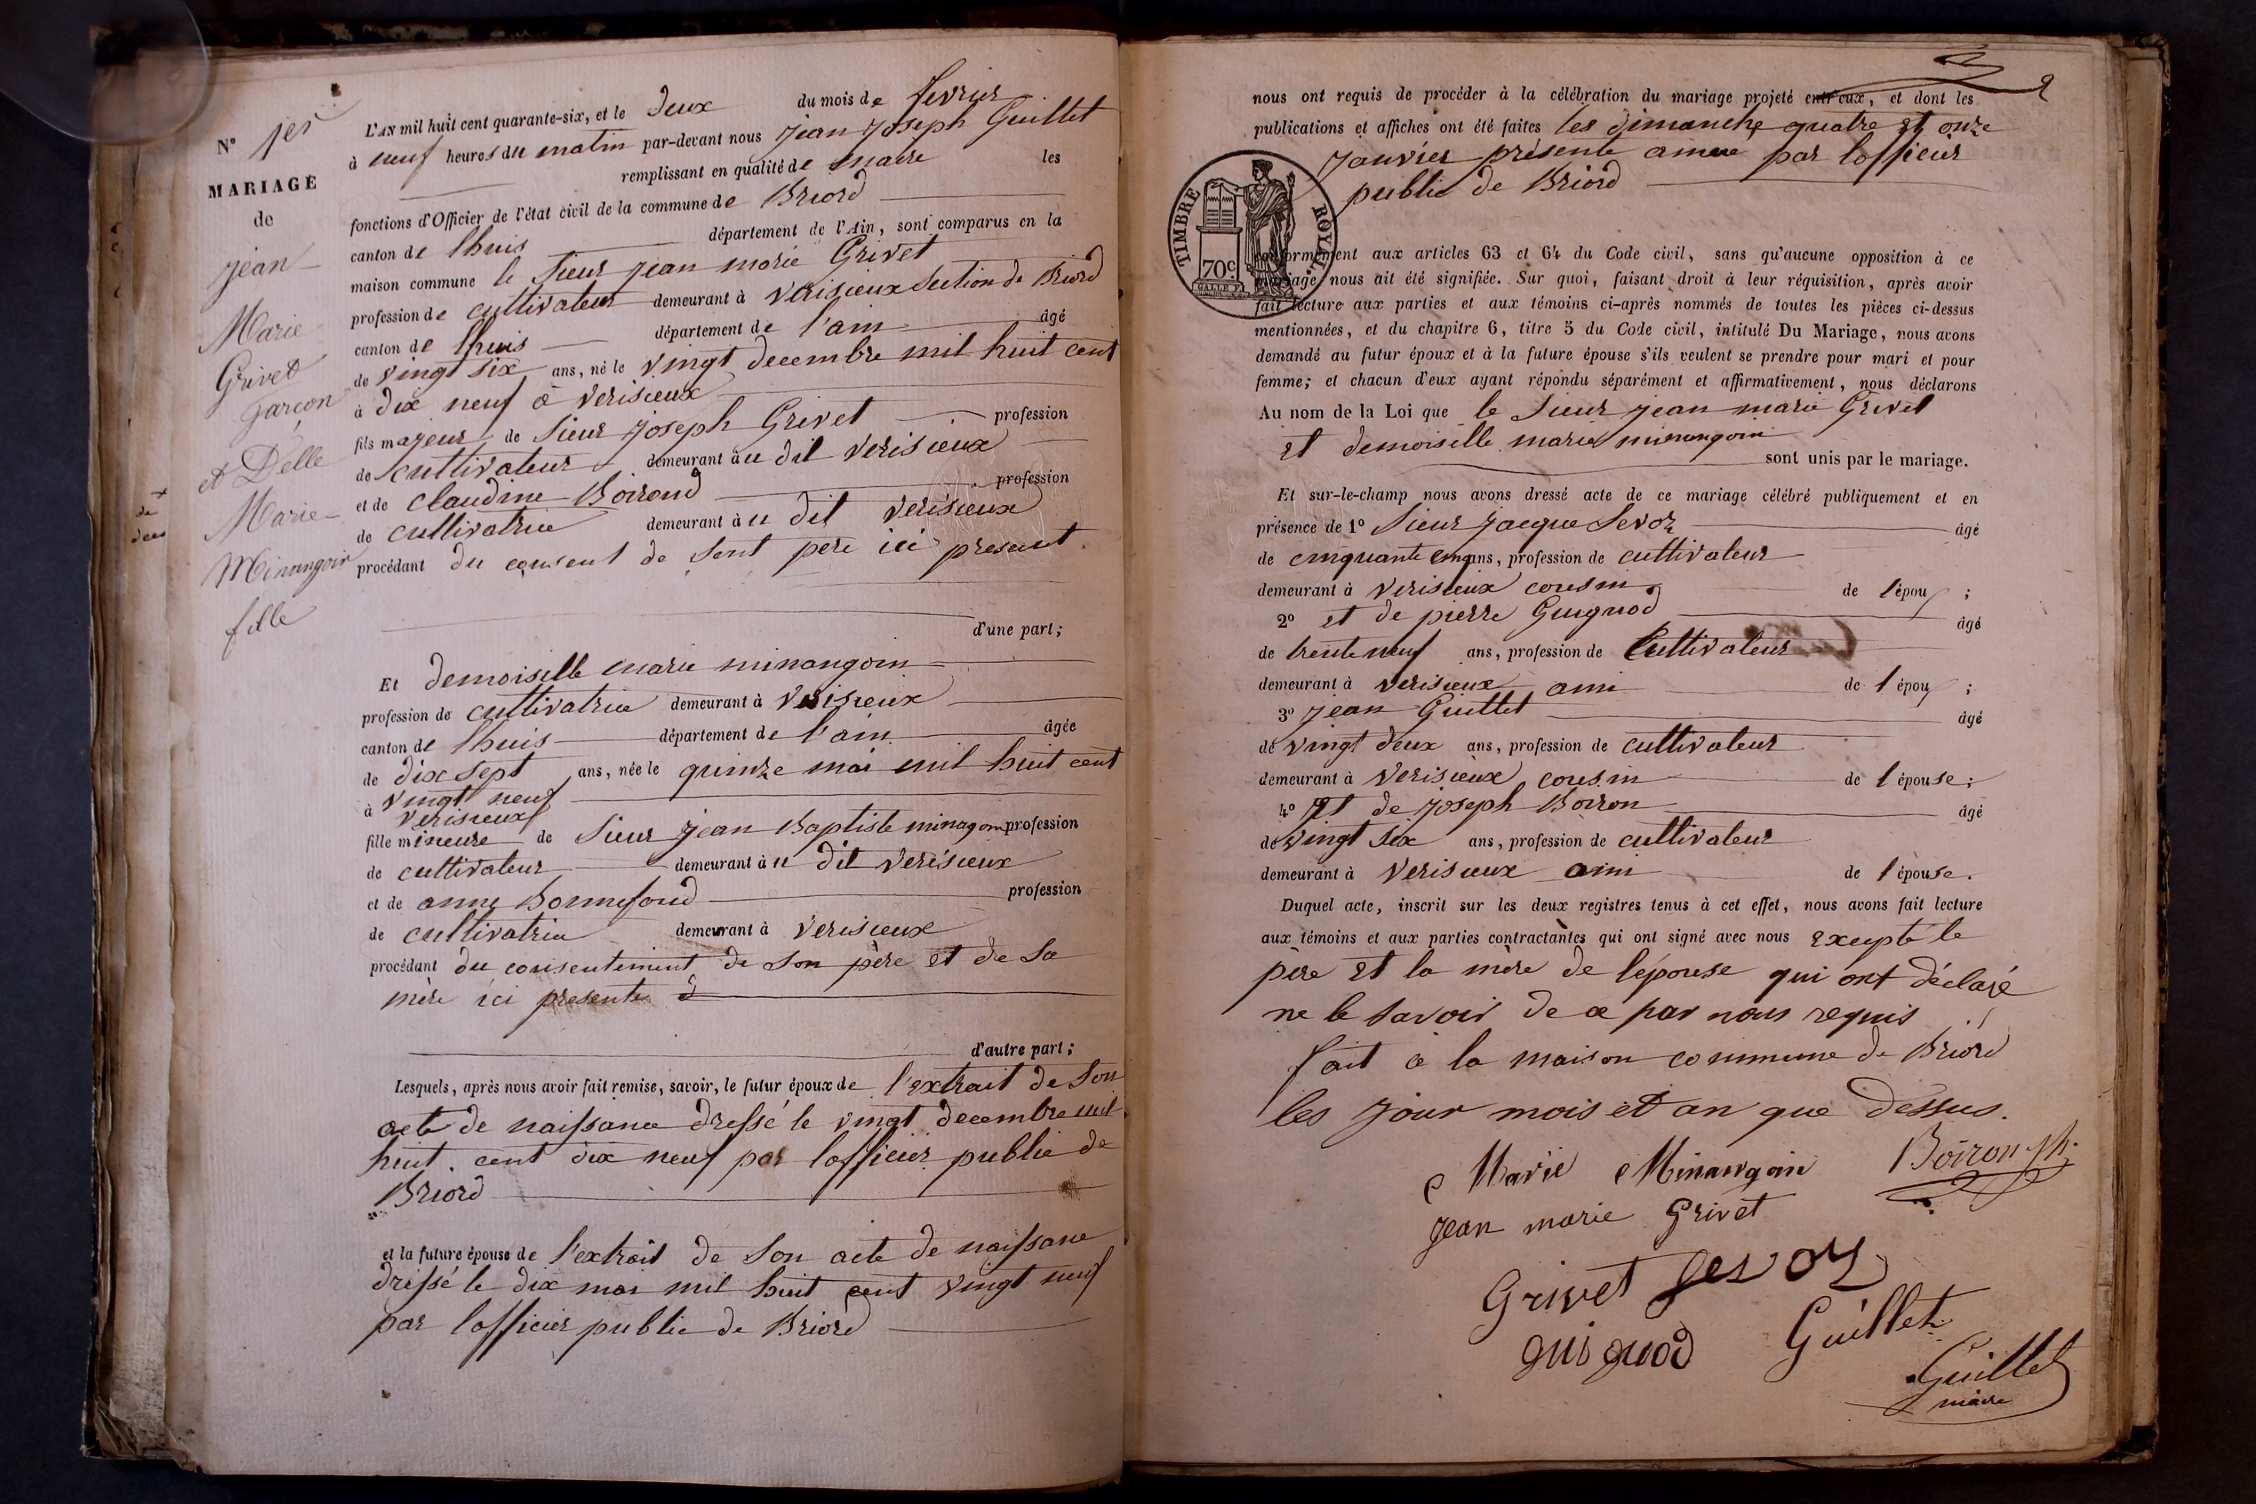 N° 1er
MARIAGE
de
jean
Marie
Grivet
garçon
et Delle
Marie
Minangoin
fille
L'AN mil huit cent quarante-six, et le deux du mois de fevrier
à neuf heures du matin par-devant nous jean joseph Guillet
remplissant en qualité de maire les
fonctions d'Officier de l'état civil de la commune de Briord
canton de lhuis département de l'Ain, sont comparus en la
maison commune le sieur jean marie Grivet
profession de cultivateur demeurant à verisieux section de Briord
canton de lhuis département de l'ain âgé
de vingt six ans, né le vingt decembre mil huit cent
à dix neuf à verisieux
fils majeur de sieur joseph Grivet profession
de cultivateur demeurant à u dit verisieux
et de claudine Boirond profession
de cultivatrice demeurant à u dit verisieux
procédant du consent de sont pere ici present
d'une part;
Et demoiselle marie minangoin
profession de cultivatrice demeurant à verisieux
canton de lhuis département de l'ain âgée
de dix sept ans, née le quinze mai mil huit cent
à vingt neuf
verisieux
fille mineure de sieur jean Baptiste minagoin profession
de cultivateur demeurant à u dit verisieux
et de anne Bonnefond profession
de cultivatrice demeurant à verisieux
procédant du consentement de son père et de sa
mère ici presente
d'autre part;
Lesquels, après nous avoir fait remise, savoir, le futur époux de l'extrait de son
acte de naissance dressé le vingt decembre mil
huit cent dix neuf par lofficier public de
Briord
et la future épouse de l'extrait de son acte de naissance
dressé le dix mai mil huit cent vingt neuf
par lofficier public de Briord
2
nous ont requis de procéder à la célébration du mariage projeté entr'eux, et dont les
publications et affiches ont été faites les dimanche quatre et onze
janvier présente année par lofficier
public de Briord
TIMBRE ROYAL
70c
conformément aux articles 63 et 64 du Code civil, sans qu'aucune opposition à ce
mariage nous ait été signifiée. Sur quoi, faisant droit à leur réquisition, après avoir
fait lecture aux parties et aux témoins ci-après nommés de toutes les pièces ci-dessus
mentionnées, et du chapitre 6, titre 5 du Code civil, intitulé Du Mariage, nous avons
demandé au futur époux et à la future épouse s'ils veulent se prendre pour mari et pour
femme; et chacun d'eux ayant répondu séparément et affirmativement, nous déclarons
Au nom de la Loi que le sieur jean marie Grivet
et demoiselle marie minangoin
sont unis par le mariage.
Et sur-le-champ nous avons dressé acte de ce mariage célébré publiquement et en
présence de 1° sieur jacque Sevoz âgé
de cinquante cinq ans, profession de cultivateur
demeurant à verisieux cousin de l'épou ;
2° et de pierre Guignod âgé
de trente neuf ans, profession de Cultivateur
demeurant à verisieux ami de l'épou ;
3° jean Guillet âgé
de vingt deux ans, profession de cultivateur
demeurant à verisieux cousin de l'épouse;
4° et de joseph Boiron âgé
de vingt six ans, profession de cultivateur
demeurant à verisieux ami de l'épouse.
Duquel acte, inscrit sur les deux registres tenus à cet effet, nous avons fait lecture
aux témoins et aux parties contractantes qui ont signé avec nous excepté le
père et la mère de l'épouse qui ont déclaré
ne le savoir de ce par nous requis
fait à la maison commune de Briord
les jour mois et an que dessus.
Marie Minangoin Boiron jh
jean marie Grivet
Grivet Sevoz
guignod Guillet
Guillet
maire